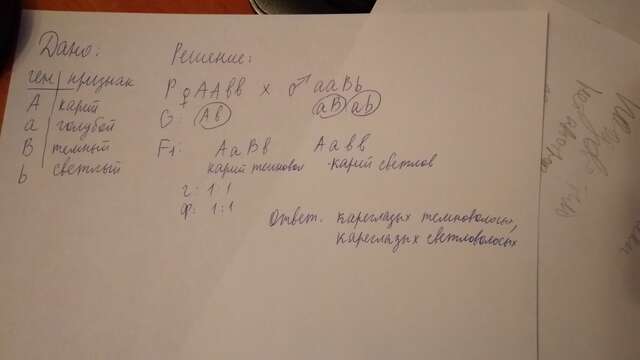 Дано:
ген признак
A карий
a голубой
B темный
b светлый
Решение:
P ♀ AAвв x ♂ ааBb
G: Aв aB ab
F1: AaBв Aaвв
карий темновол карий светлов
г: 1:1
ф: 1:1
Ответ. кареглазых темноволосых,
кареглазых светловолосых